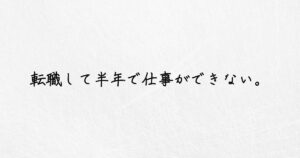 転職して半年で仕事ができない。